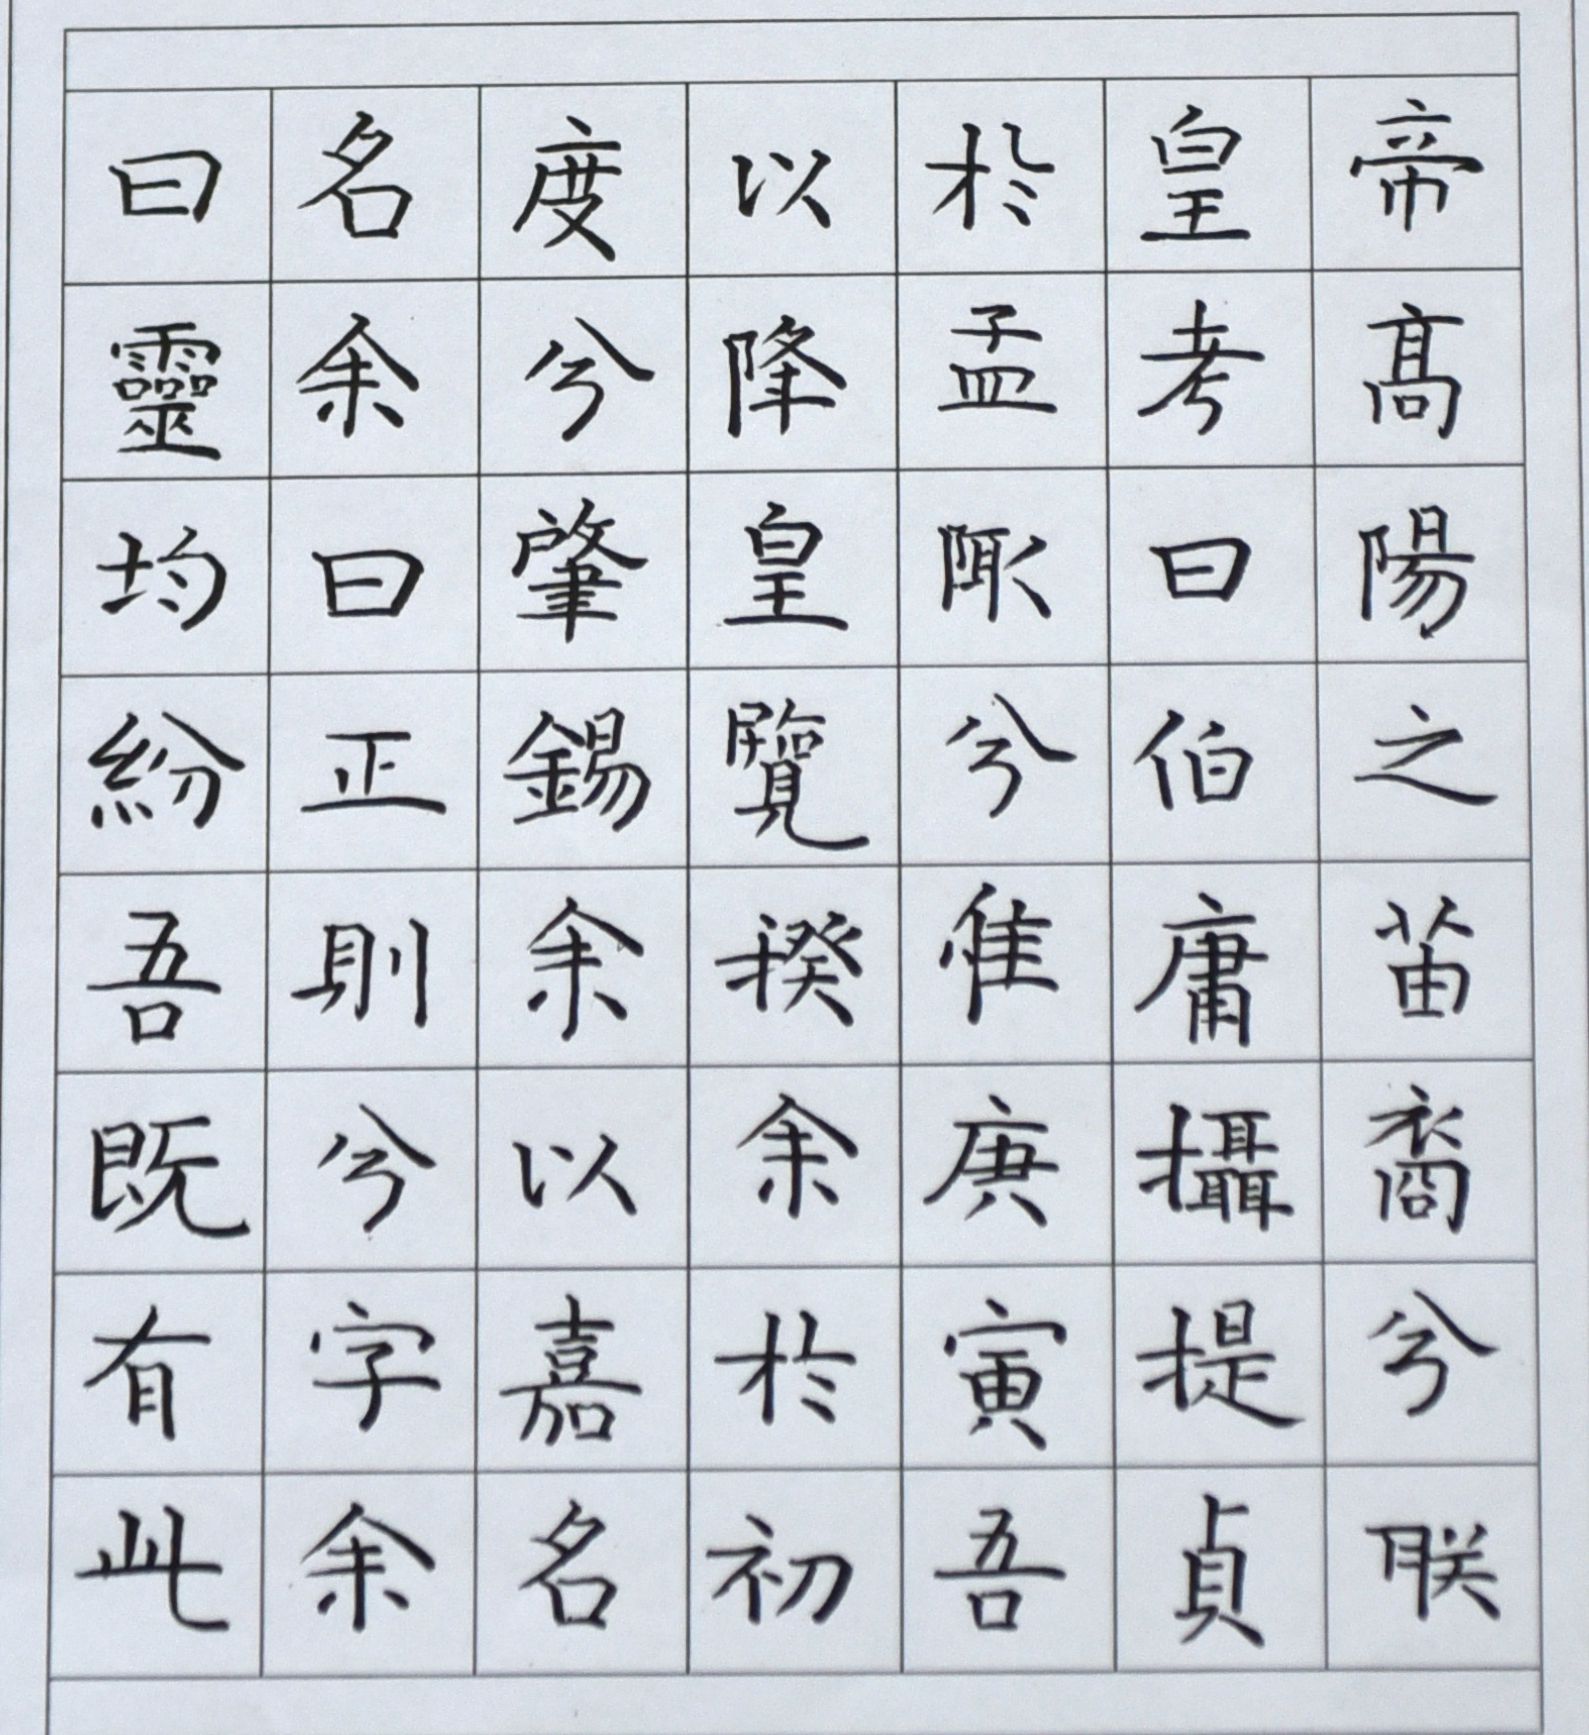 帝髙陽之苗裔兮联
皇考曰伯庸攝提貞
於孟陬兮隹庚寅吾
以降皇覽揆余於初
度兮肇錫余以嘉名
名余曰正則兮字余
曰靈均紛吾既有此